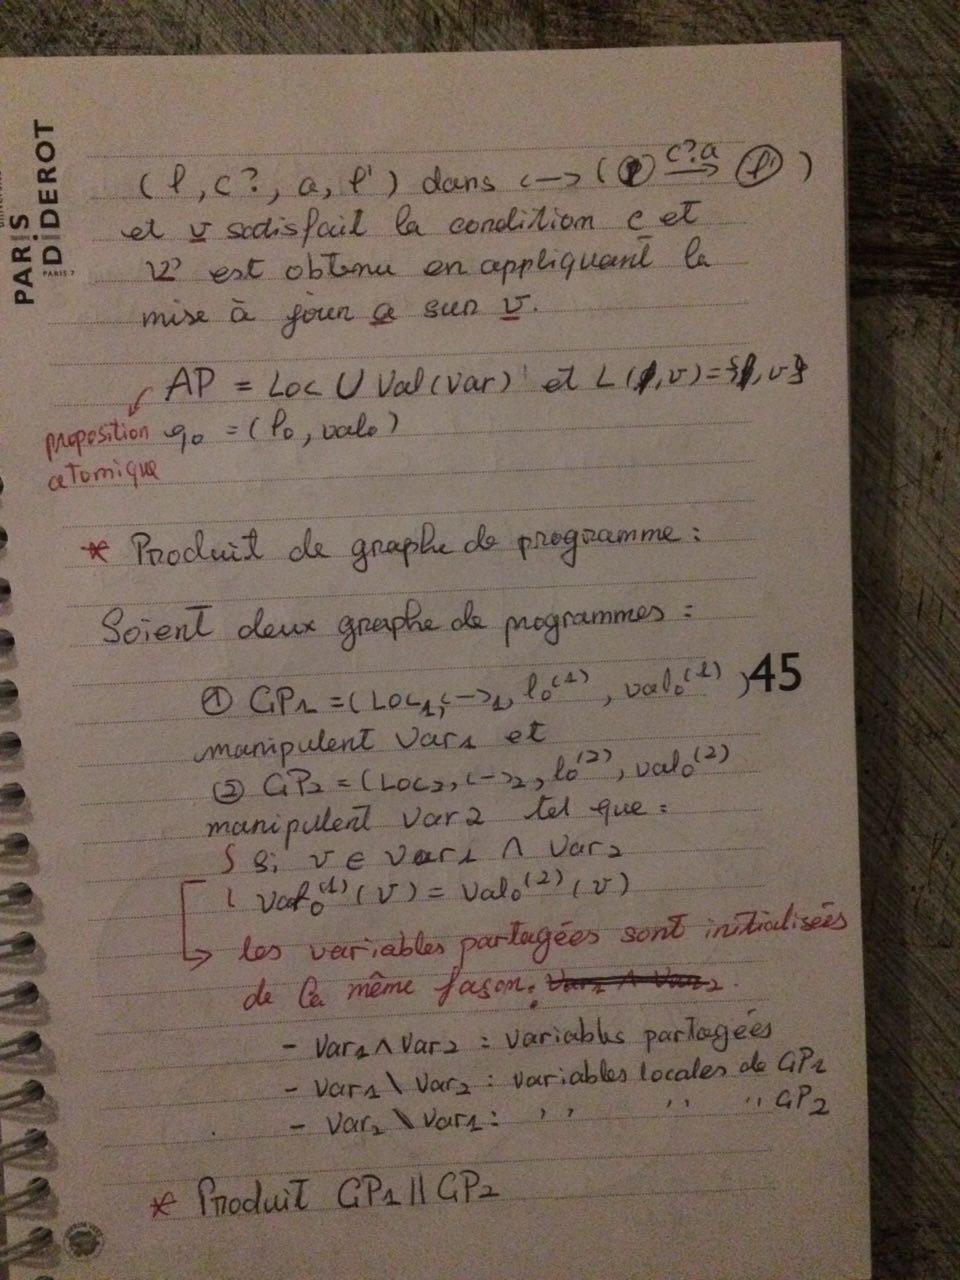 PARIS
DIDEROT
PARIS 7
( l , c ? , a , l' ) dans ↪ ( (l) c?a → (l') )
et v satisfait la condition c et
v' est obtenu en appliquant la
mise à jour a sur v.
AP = Loc ∪ Val(Var) et L(l,v)={l,v}
proposition q0 = (l0, val0)
atomique
* Produit de graphe de programme :
Soient deux graphe de programmes :
① GP1 = (Loc1, ↪1, l0(1), val0(1) ) 45
manipulent Var1 et
② GP2 = (Loc2, ↪2, l0(2), val0(2)
manipulent Var2 tel que :
Si v ∈ Var1 ∧ Var2
val0(1)(v) = val0(2)(v)
les variables partagées sont initialisées
de la même façon.
- Var1 ∧ Var2 : variables partagées
- Var1 \ Var2 : variables locales de GP1
- Var2 \ Var1 : ,, ,, ,, GP2
* Produit GP1 || GP2